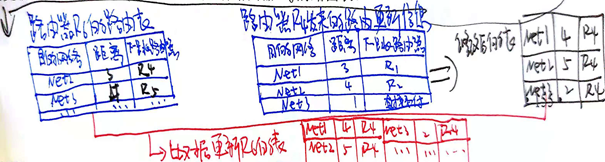 路由器R6的路由表
目的网络 距离 下一跳路由器
Net2 3 R4
Net3 4 R5
... ... ...
路由器R4发来的路由更新信息
目的网络 距离 下一跳路由器
Net1 3 R1
Net2 4 R2
Net3 1 直接交付
修改后的表
Net1 4 R4
Net2 5 R4
Net3 2 R4
比对后更新R6的表
Net1 4 R4 Net3 2 R4
Net2 5 R4 ... ... ...